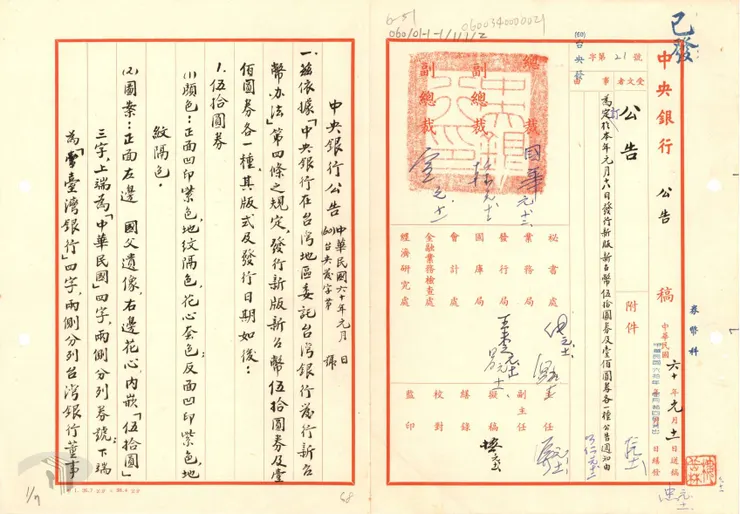 已發
中央銀行 公告 稿
(60)台央發字第21號
受文者
公告
附件
事由
為定於本年元月十八日發行新版新台幣伍拾圓券及壹佰圓券各一種公告週知由
中華民國六十年元月十一日送稿
券幣科
總裁
副總裁
副總裁
秘書處
業務局
發行局
國庫局
會計處
金融業務檢查處
經濟研究處
主任
副主任
擬稿
繕錄
校對
監印
060/01-1-1/1/1/2
0600340000021
中央銀行公告
中華民國六十年元月 日
(60)台央發字第 號
一、茲依據「中央銀行在台灣地區委託台灣銀行發行新台
幣办法」第四條之規定,發行新版新台幣伍拾圓券及壹
佰圓券各一種,其版式及發行日期如後:
1.伍拾圓券
(1)顏色:正面凹印紫色,地紋隔色,花心套色;反面凹印紫色,地
紋隔色。
(2)圖案:正面左邊 國父遺像,右邊花心,內嵌「伍拾圓」
三字,上端為「中華民國」四字,兩側分列券號;下端
為「臺灣銀行」四字,兩側分列台灣銀行董事
68